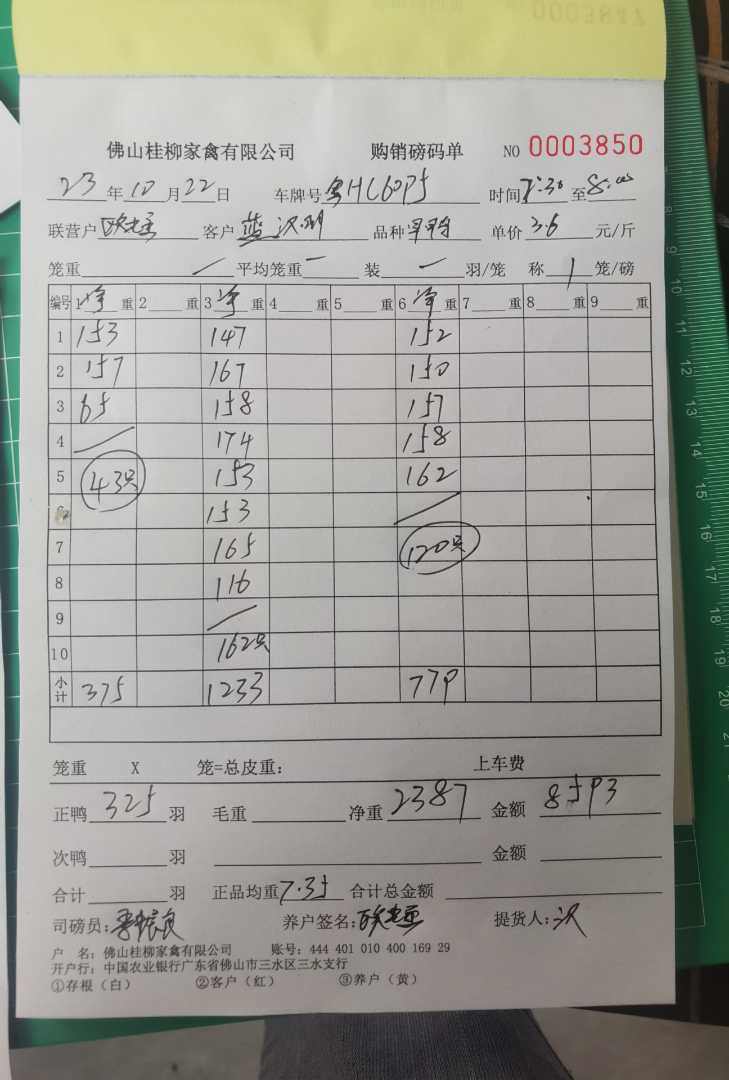 佛山桂柳家禽有限公司 购销磅码单 NO 0003850
23年10月22日 车牌号粤HC60P5 时间7:30至8:00
联营户 客户蓝汉明 品种 单价3.6元/斤
笼重 / 平均笼重 一 装 一 羽/笼 称 1 笼/磅
编号 1净重 2重 3净重 4重 5重 6净重 7重 8重 9重
1 153 147 152
2 157 167 150
3 65 158 157
4 / 174 158
5 43只 153 162
153 /
7 165 120只
8 116
9 /
10 162只
小计 375 1233 779
笼重 X 笼=总皮重: 上车费
正鸭325羽 毛重 净重2387 金额8593
次鸭 羽 金额
合计 羽 正品均重7.35 合计总金额
司磅员: 养户签名: 提货人:汉
户 名: 佛山桂柳家禽有限公司 账号: 444 401 010 400 169 29
开户行: 中国农业银行广东省佛山市三水区三水支行
①存根(白) ②客户(红) ③养户(黄)